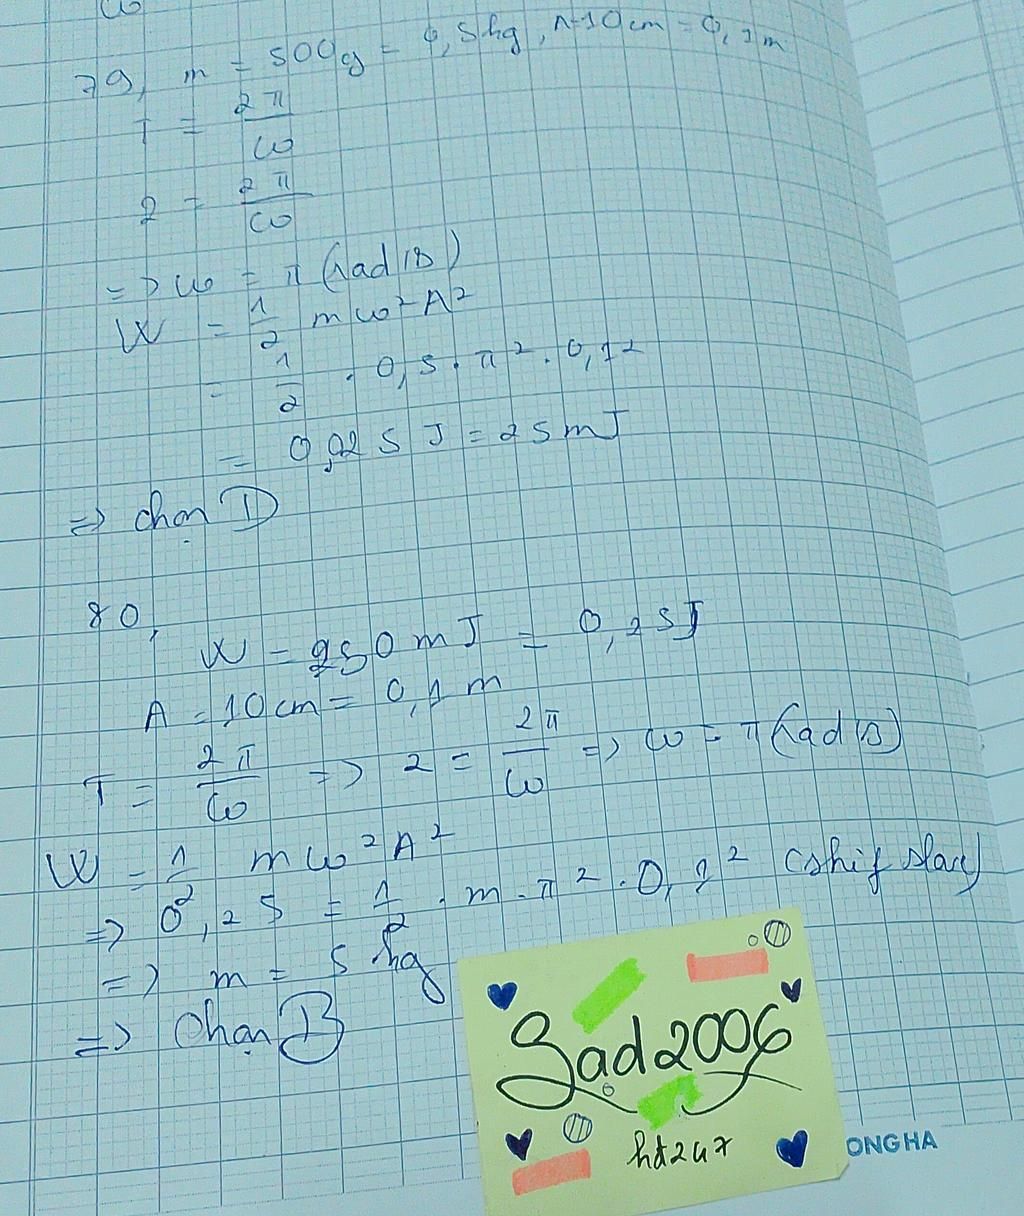 79, m = 500g = 0,5kg, A=10cm = 0,1m
T = 2π/ω
2 = 2π/ω
=> ω = π (rad/s)
W = 1/2 mω²A²
= 1/2 . 0,5 . π² . 0,1²
= 0,025 J = 25mJ
=> chọn D
80,
W = 250mJ = 0,25J
A = 10cm = 0,1m
T = 2π/ω => 2 = 2π/ω => ω = π (rad/s)
W = 1/2 mω²A²
=> 0,25 = 1/2 . m . π² . 0,1² (shift
=> m = 5 kg
=> Chọn B
Sad2006
hd247
ONG HA